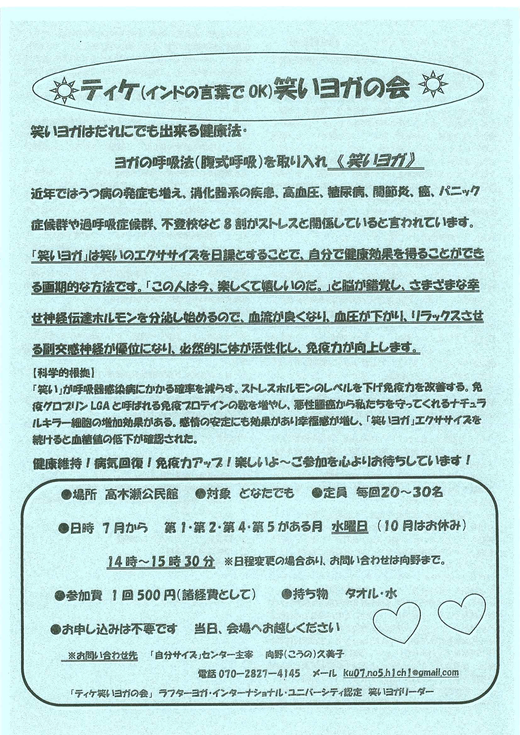 ティケ(インドの言葉でOK)笑いヨガの会
笑いヨガはだれにでも出来る健康法・
ヨガの呼吸法(腹式呼吸)を取り入れ《笑いヨガ》
近年ではうつ病の発症も増え、消化器系の疾患、高血圧、糖尿病、関節炎、癌、パニック
症候群や過呼吸症候群、不登校など8割がストレスと関係していると言われています。
「笑いヨガ」は笑いのエクササイズを日課とすることで、自分で健康効果を得ることができ
る画期的な方法です。「この人は今、楽しくて嬉しいのだ。」と脳が錯覚し、さまざまな幸
せ神経伝達ホルモンを分泌し始めるので、血流が良くなり、血圧が下がり、リラックスさせ
る副交感神経が優位になり、必然的に体が活性化し、免疫力が向上します。
【科学的根拠】
「笑い」が呼吸器感染病にかかる確率を減らす。ストレスホルモンのレベルを下げ免疫力を改善する。免
疫グロブリンLGAと呼ばれる免疫プロテインの数を増やし、悪性腫瘍から私たちを守ってくれるナチュラ
ルキラー細胞の増加効果がある。感情の安定にも効果があり幸福感が増し、「笑いヨガ」エクササイズを
続けると血糖値の低下が確認された。
健康維持!病気回復!免疫力アップ!楽しいよ~ご参加を心よりお待ちしています!
●場所 高木瀬公民館 ●対象 どなたでも ●定員 毎回20~30名
●日時 7月から 第1・第2・第4・第5がある月 水曜日(10月はお休み)
14時~15時30分 ※日程変更の場合あり、お問い合わせは向野まで。
●参加費 1回500円(諸経費として) ●持ち物 タオル・水
●お申し込みは不要です 当日、会場へお越しください
※お問い合わせ先 「自分サイズ」センター主宰 向野(こうの)久美子
電話070-2827-4145 メール ku07.no5.h1ch1@gmail.com
「ティケ笑いヨガの会」 ラフターヨガ・インターナショナル・ユニバーシティ認定 笑いヨガリーダー